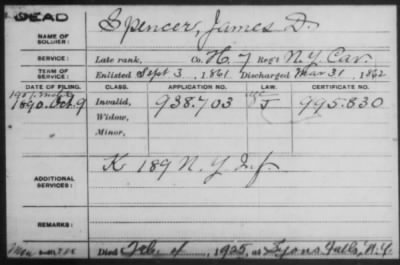 DEAD
NAME OF SOLDIER: Spencer, James D.
SERVICE: Late rank, Co. H. 7 Reg't N.Y. Cav.
TERM OF SERVICE: Enlisted Sept 3, 1861 Discharged Mar 31, 1862
DATE OF FILING. CLASS. APPLICATION NO. LAW. CERTIFICATE NO.
1890. Oct. 9 Invalid, 938.703 J 995.830
Widow,
Minor,
ADDITIONAL SERVICES: K 189 N.Y. Inf.
REMARKS:
Died Feb. 1925, at Lyons Falls, N.Y.